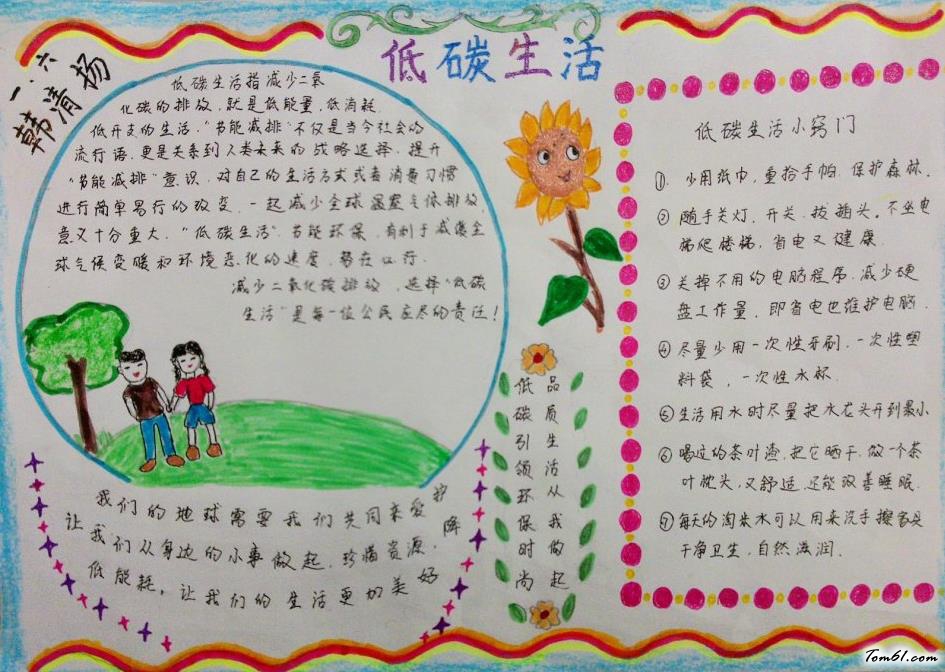 低碳生活
一.六
韩清扬
低碳生活指减少二氧
化碳的排放，就是低能量，低消耗
低开支的生活，"节能减排"不仅是当今社会的
流行语，更是关系到人类未来的战略选择，提升
"节能减排"意识，对自己的生活方式或者消费习惯
进行简单易行的改变，一起减少全球温室气体排放，
意义十分重大，"低碳生活"节能环保，有利于减缓全
球气候变暖和环境恶化的速度，势在必行.
减少二氧化碳排放，选择"低碳
生活"是每一位公民应尽的责任！
我们的地球需要我们共同来爱护
让我们从身边的小事做起，珍惜资源，降
低能耗，让我们的生活更加美好
低碳引领环保时尚
品质生活从我做起
低碳生活小窍门
①. 少用纸巾，重拾手帕，保护森林.
② 随手关灯，开关，拔插头，不坐电
梯爬楼梯，省电又健康.
③ 关掉不用的电脑程序，减少硬
盘工作量，即省电也维护电脑.
④ 尽量少用一次性牙刷，一次性塑
料袋，一次性水杯.
⑤ 生活用水时尽量把水龙头开到最小
⑥ 喝过的茶叶渣，把它晒干，做一个茶
叶枕头，又舒适，还能改善睡眠.
⑦ 每天的淘米水可以用来洗手擦家具
干净卫生，自然滋润.
Tom61.com